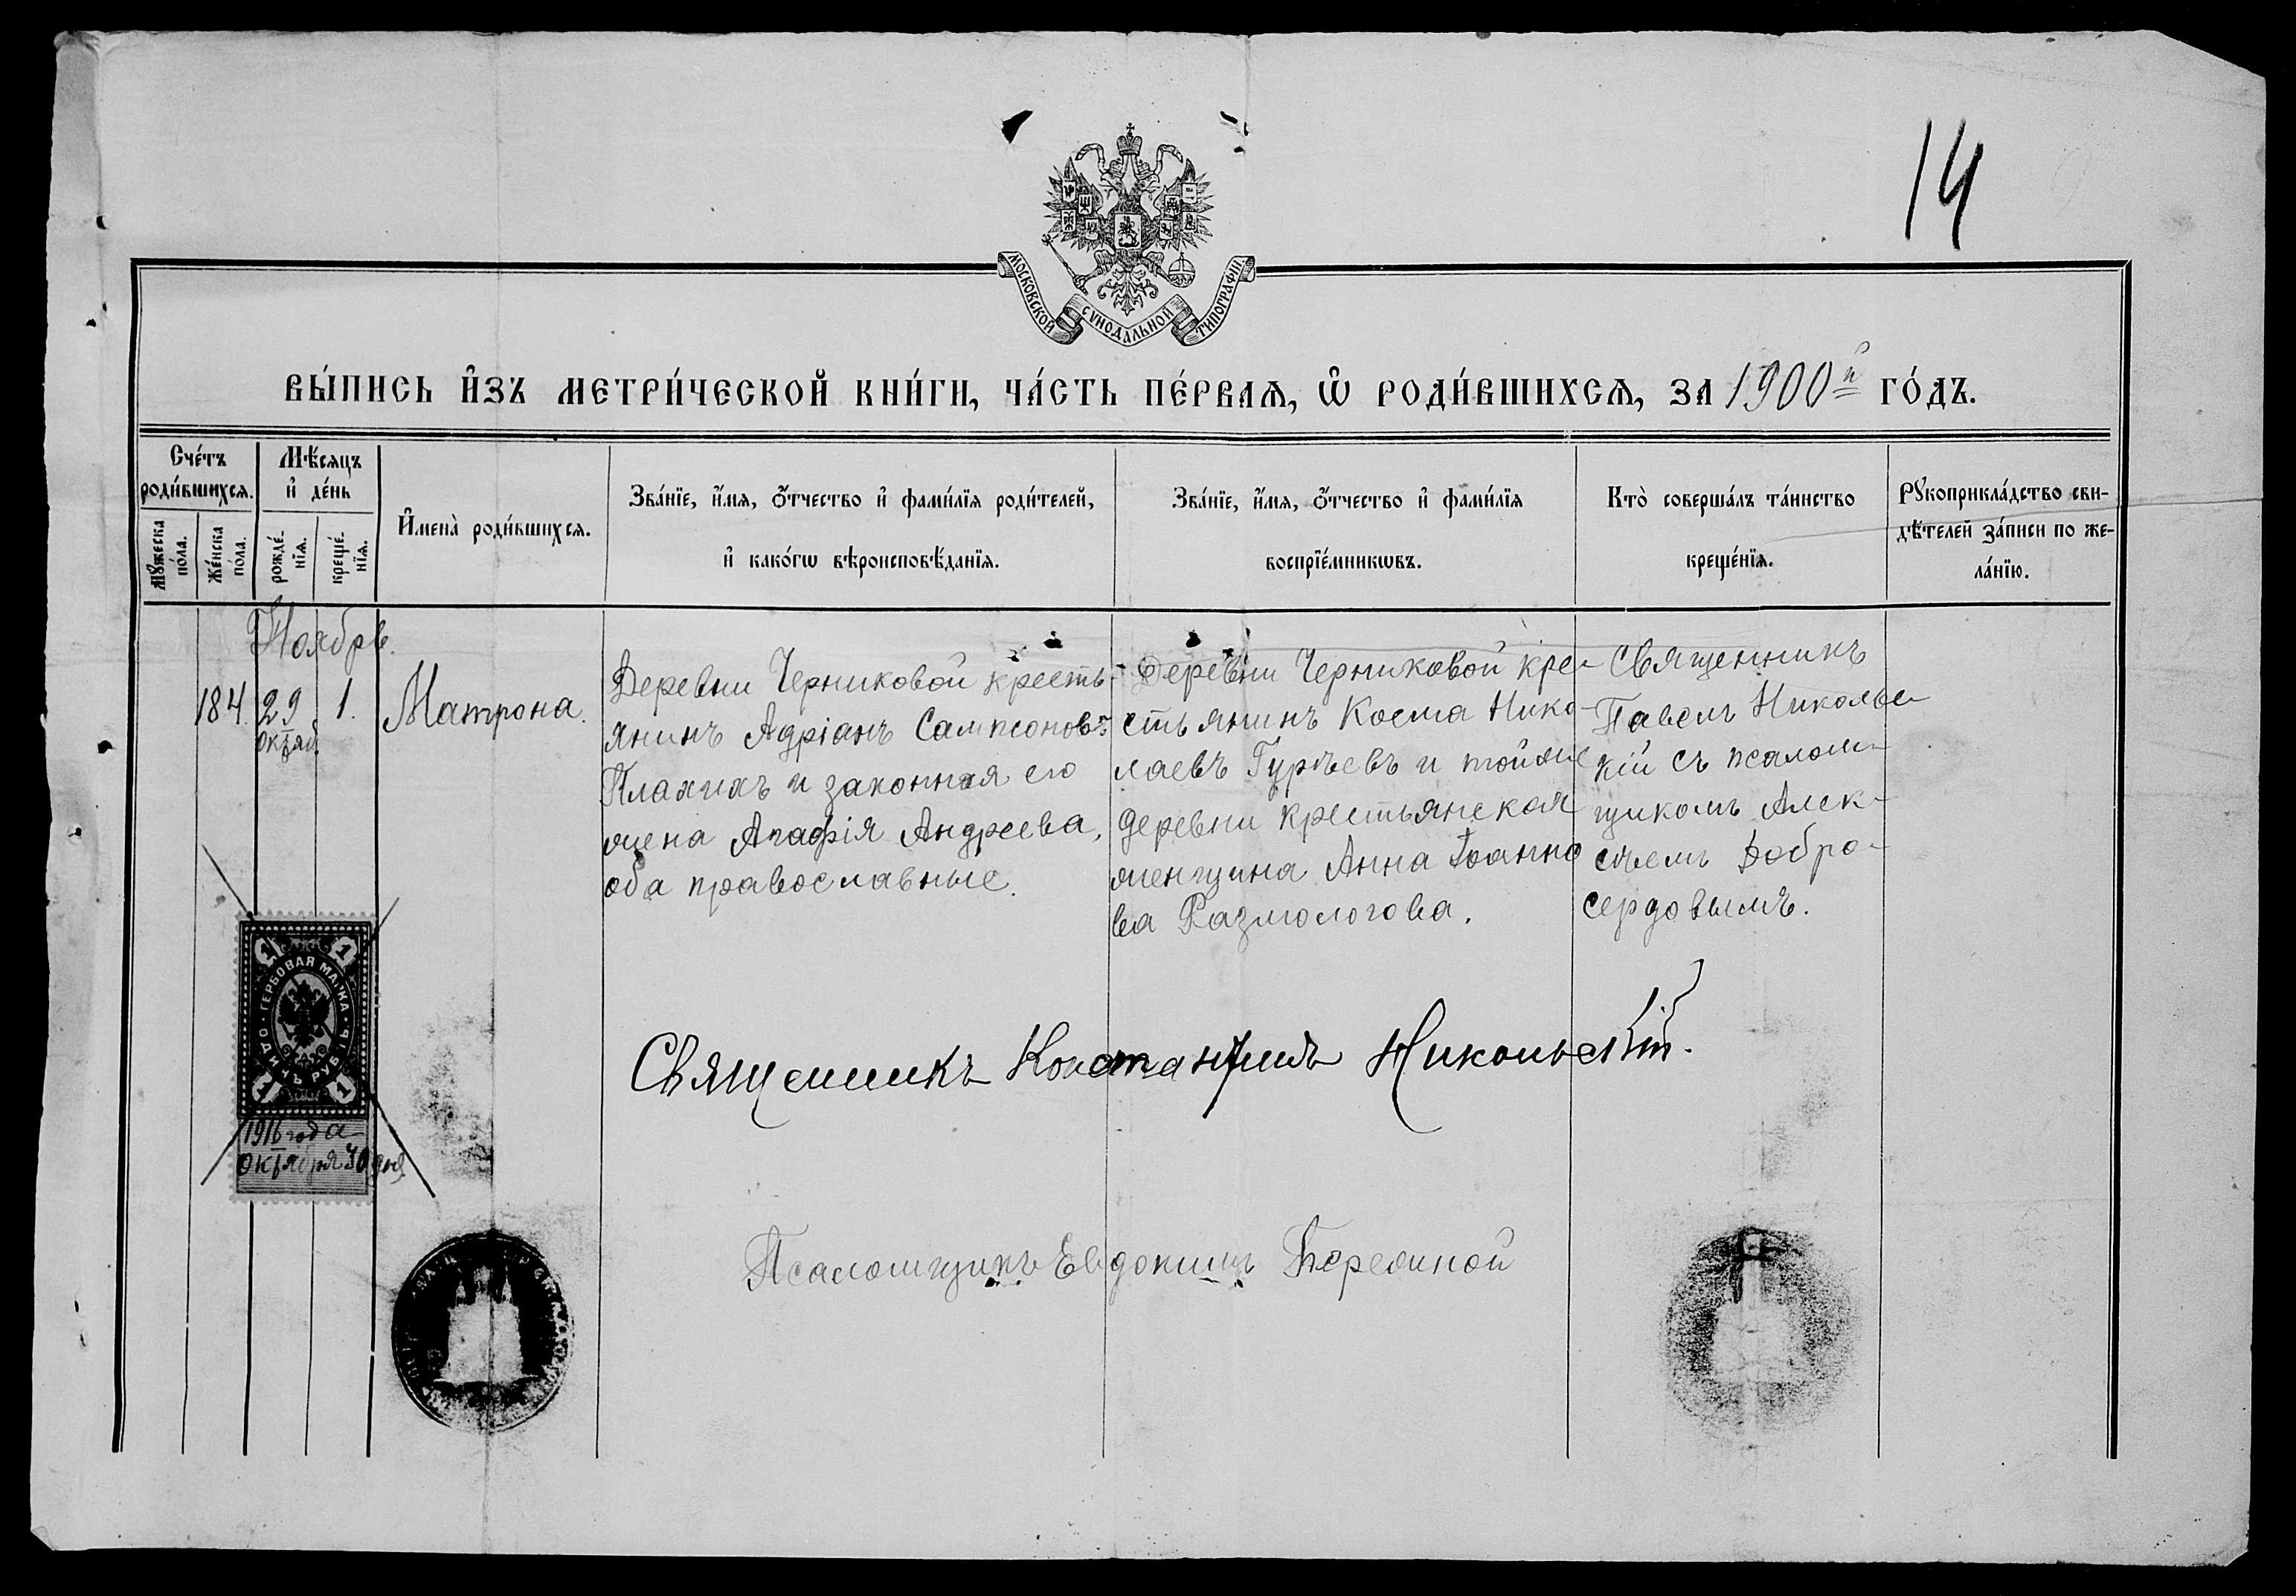 14
МОСКОВСКОЙ СѴНОДАЛЬНОЙ ТИПОГРАФІИ.
ВЫ́ПИСЬ И҆ЗЪ МЕТРИ́ЧЕСКОЙ КНИ́ГИ, ЧА́СТЬ ПЕ́РВАѦ, Ѡ҆ РОДИ́ВШИХСѦ, ЗА 1900й ГО́ДЪ.
Сче́тъ роди́вшихсѧ.
Мꙋ́жеска по́ла.
Же́нска по́ла.
Мѣ́сѧцъ и҆ де́нь
рожде́нїѧ.
креще́нїѧ.
И҆мена̀ роди́вшихсѧ.
Зва́нїе, и҆́мѧ, ѻ҆́тчество и҆ фами́лїѧ роди́телей,
и҆ како́гѡ вѣроисповѣ́данїѧ.
Зва́нїе, и҆́мѧ, ѻ҆́тчество и҆ фами́лїѧ
воспрїе́мникѡвъ.
Кто̀ соверша́лъ та́инство
креще́нїѧ.
Рꙋкоприкла́дство сви-
дѣ́телей за́писи по же-
ла́нїю.
Ноябрь.
184.
29
октяб.
1.
Матрона.
Деревни Черниковой кресть-
янинъ Адріанъ Сампсоновъ
Плахихъ и законная его
жена Агафія Андреева,
оба православные.
Деревни Черниковой кре-
стьянинъ Косма Нико-
лаевъ Гурьевъ и тойже
деревни крестьянская
женщина Анна Іоанно
ва Размологова.
Священникъ
Павелъ Николь
скій съ псалом-
щикомъ Алек-
сѣемъ Добро-
сердовымъ.
ГЕРБОВАЯ МАРКА
ОДИНЪ РУБЛЬ
1
1
1
1
1916 года
октября 30 дня
Священникъ Константинъ Никольскій.
Псаломщикъ Евдокимъ Бережной